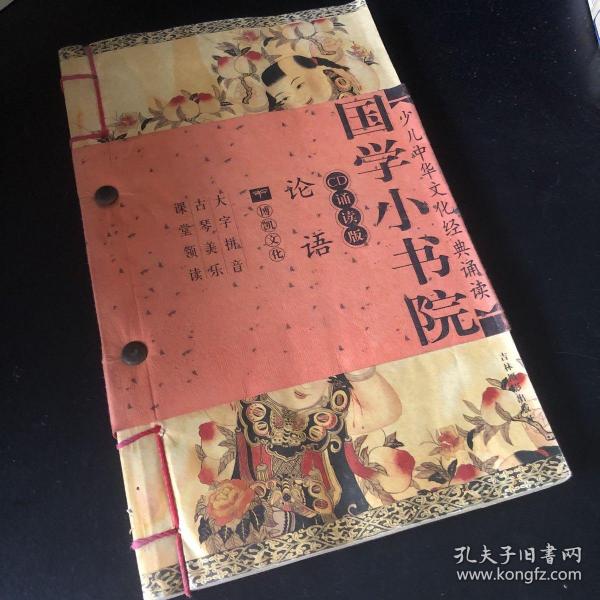 少儿中华文化经典诵读
国学小书院
CD诵读版
论语
博凯文化
大字拼音
古琴美乐
课堂领读
吉林
出版
孔夫子旧书网
www.kongfz.com